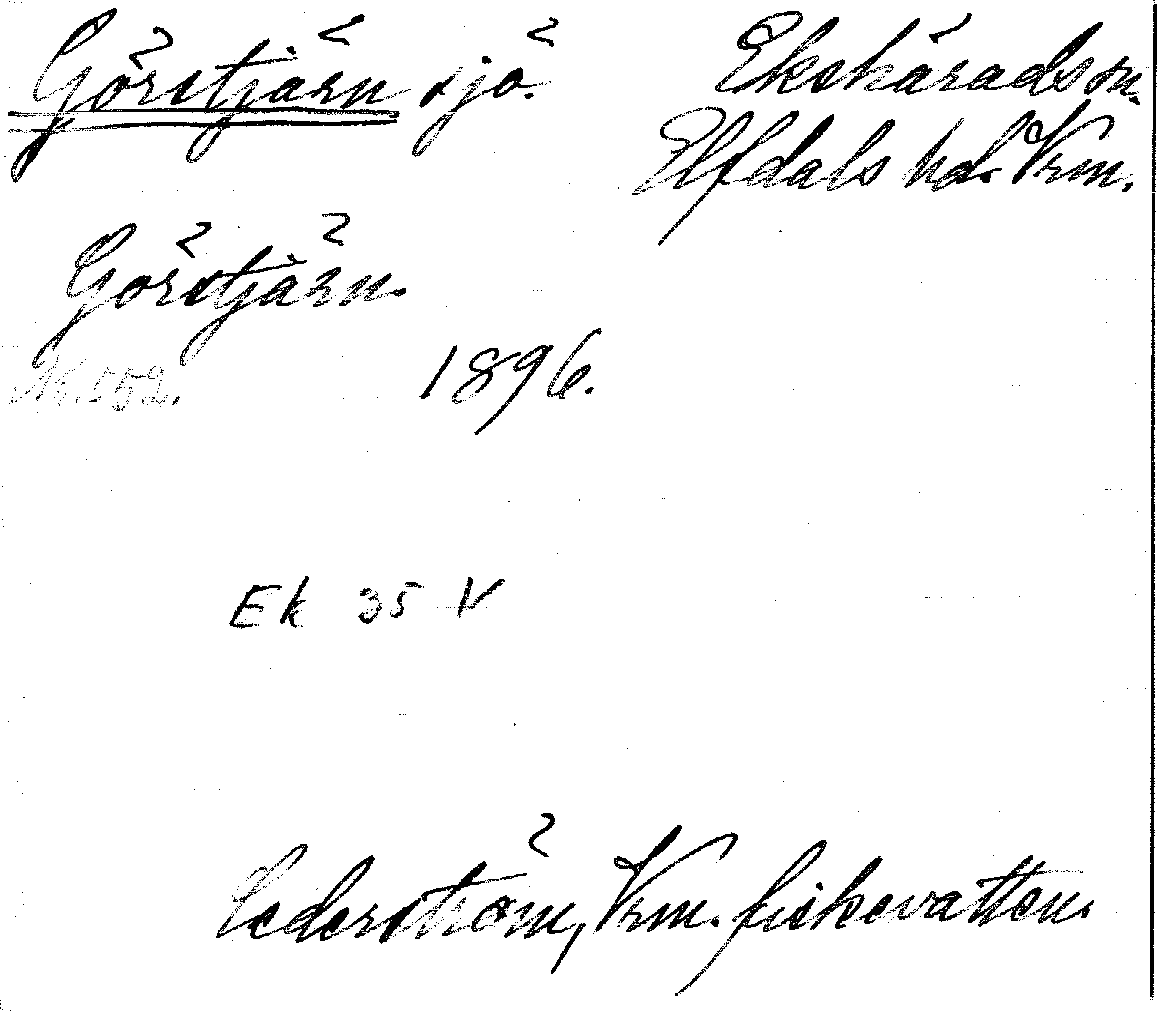 Görstjärn sjö. Ekshärads sn.
Elfdals hd. Vrm.
Görstjärn.
Nr. 552. 1896.
Ek 35 V
Cederström, Vrm. fiskevatten.